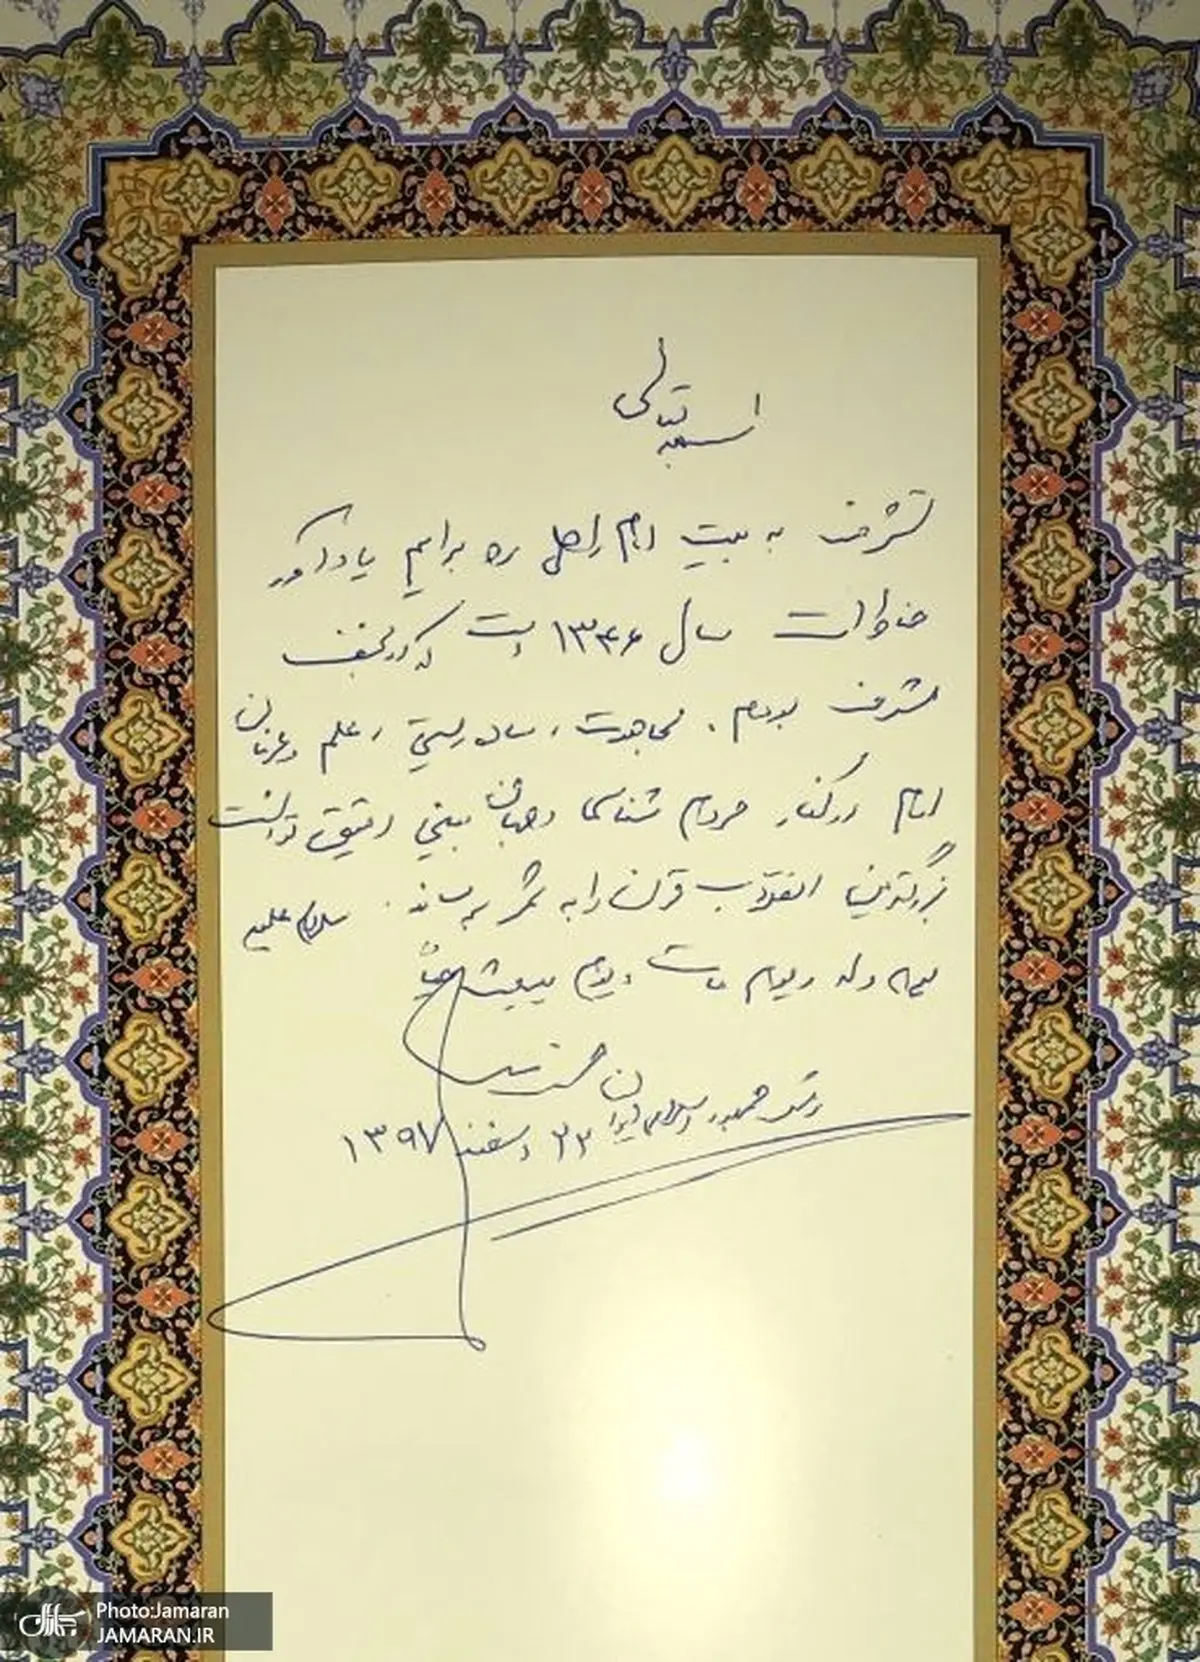 اسمه تعالی
تشرف به بیت امام راحل ره برایم یادآور
خاطرات سال ۱۳۴۶ است که در نجف
مشرف بودم. مجاهدت، ساده زیستی، علم و عرفان
امام در کنار مردم شناسی و جهان بینی دقیق توانست
بزرگترین انقلاب قرن را به ثمر برساند. سلام علیه
یوم ولد و یوم مات و یوم یبعث حیاً
حسن روحانی
رئیس جمهور اسلامی ایران
۲۲ اسفند ۱۳۹۷
Photo:Jamaran
JAMARAN.IR
جماران